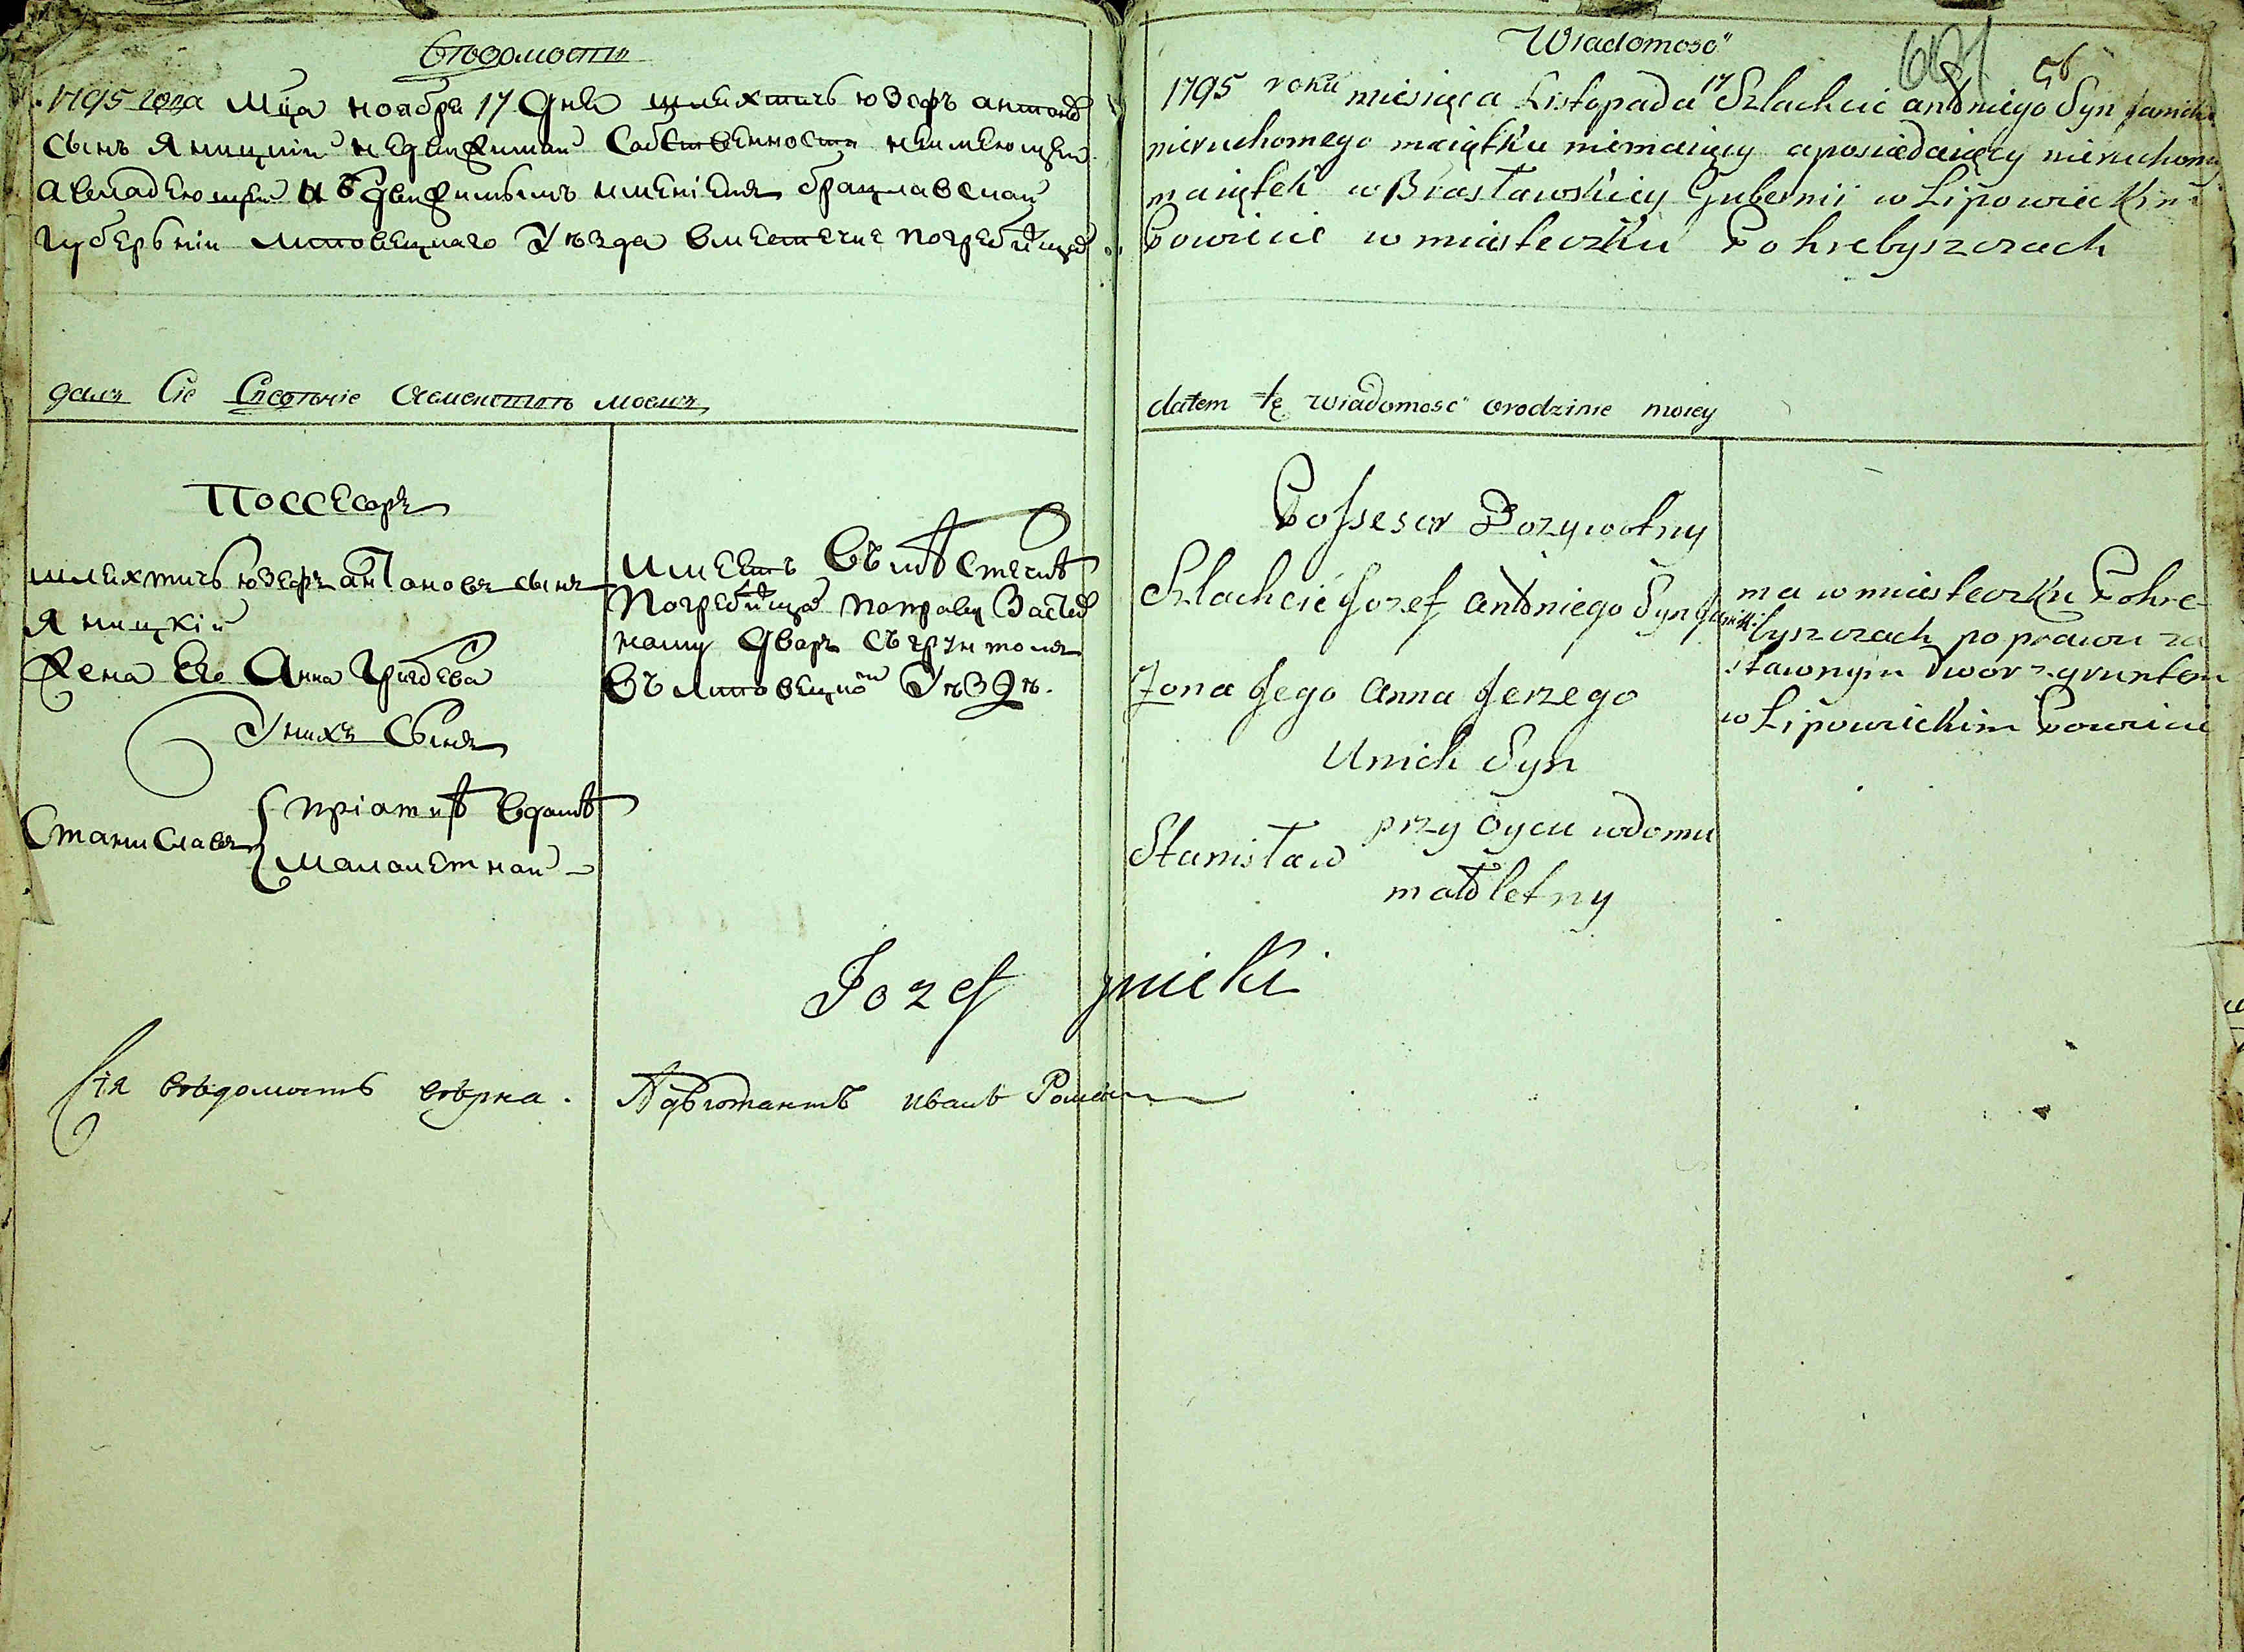 Вѣдомость
1795 года Мца ноабря 17 дня шляхтичъ юзефъ антонов
сынъ Яницкій недвижимой Собственности неимеющей
авладеющей недвижимымъ имениемъ брацлавской
губерьніи липовецкаго Уезда вместечке погребища
далъ Сіе Сведѣніе Осеменствѣ моемъ
Поссесоръ
шляхтичь юзефъ антоновъ сынъ
Яницкій
Жена Его Анна
Унихъ Сынъ
Станиславъ
приотцѣ вдомѣ
малолетной
имеетъ Въмѣстечкѣ
Погребища поправу Застав
ному дворъ съгрунтомъ
Въ липовецком Уѣздѣ.
Jozef Jnicki
Сія вѣдомость вѣрна.
Адъютантъ иванъ
Wiadomosc
1795 roku miesiąca Listopada 17 Szlachcic antoniego Syn Janicki
niruchomego maiątku nimaiący aposiadaiący niruchomy
maiątek w Brasławskiey Gubernii w Lipowieckim
Powicie w miasteczku Pohrebyszczach
dałem tę wiadomosc orodzinie moiey
Possesor Dozywotny
Szlachcic Jozef antoniego Syn Janicki
Zona Jego Anna Jerzego
Unich Syn
Stanisław
przy Oycu wdomu
małoletny
ma w miasteczku Pohre-
byszczach po prawu za
stawnym dwor z gruntem
w Lipowickim Powicie